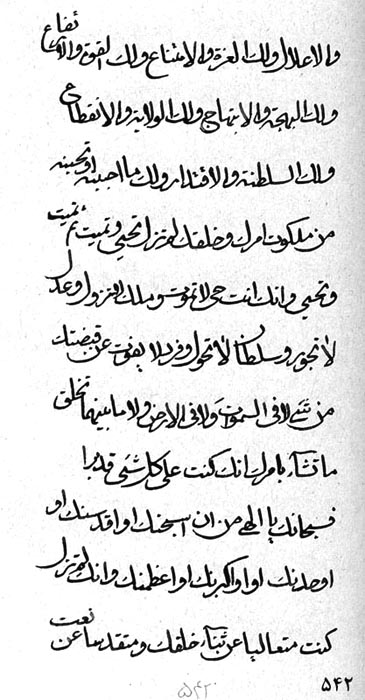 والاجلال ولك العزة والامتناع ولك القوة والارتفاع
ولك البهجة والابتهاج ولك الولاية والانقطاع
ولك السلطنة والاقتدار ولك ما احببته او تحببنه
من ملكوت امرك وخلقك لم تزل تحيي وتميت ثم تميت
وتحيي وانك انت حي لا تموت وملك لا تزول وعدل
لا تجور وسلطان لا تحول وفرد لا يفوت عن قبضتك
من شيء لا في السموات ولا في الارض ولا ما بينهما تخلق
ما تشآء بامرك انك كنت على كل شيء قديرا
فسبحانك يا الهي من ان اسبحنك او اقدسنك او
اوحدنك او اكبرنك او اعظمنك وانك لم تزل
كنت متعاليا عن ثنآء خلقك ومتقدسا عن نعت
۵۴۲
۵۴۲